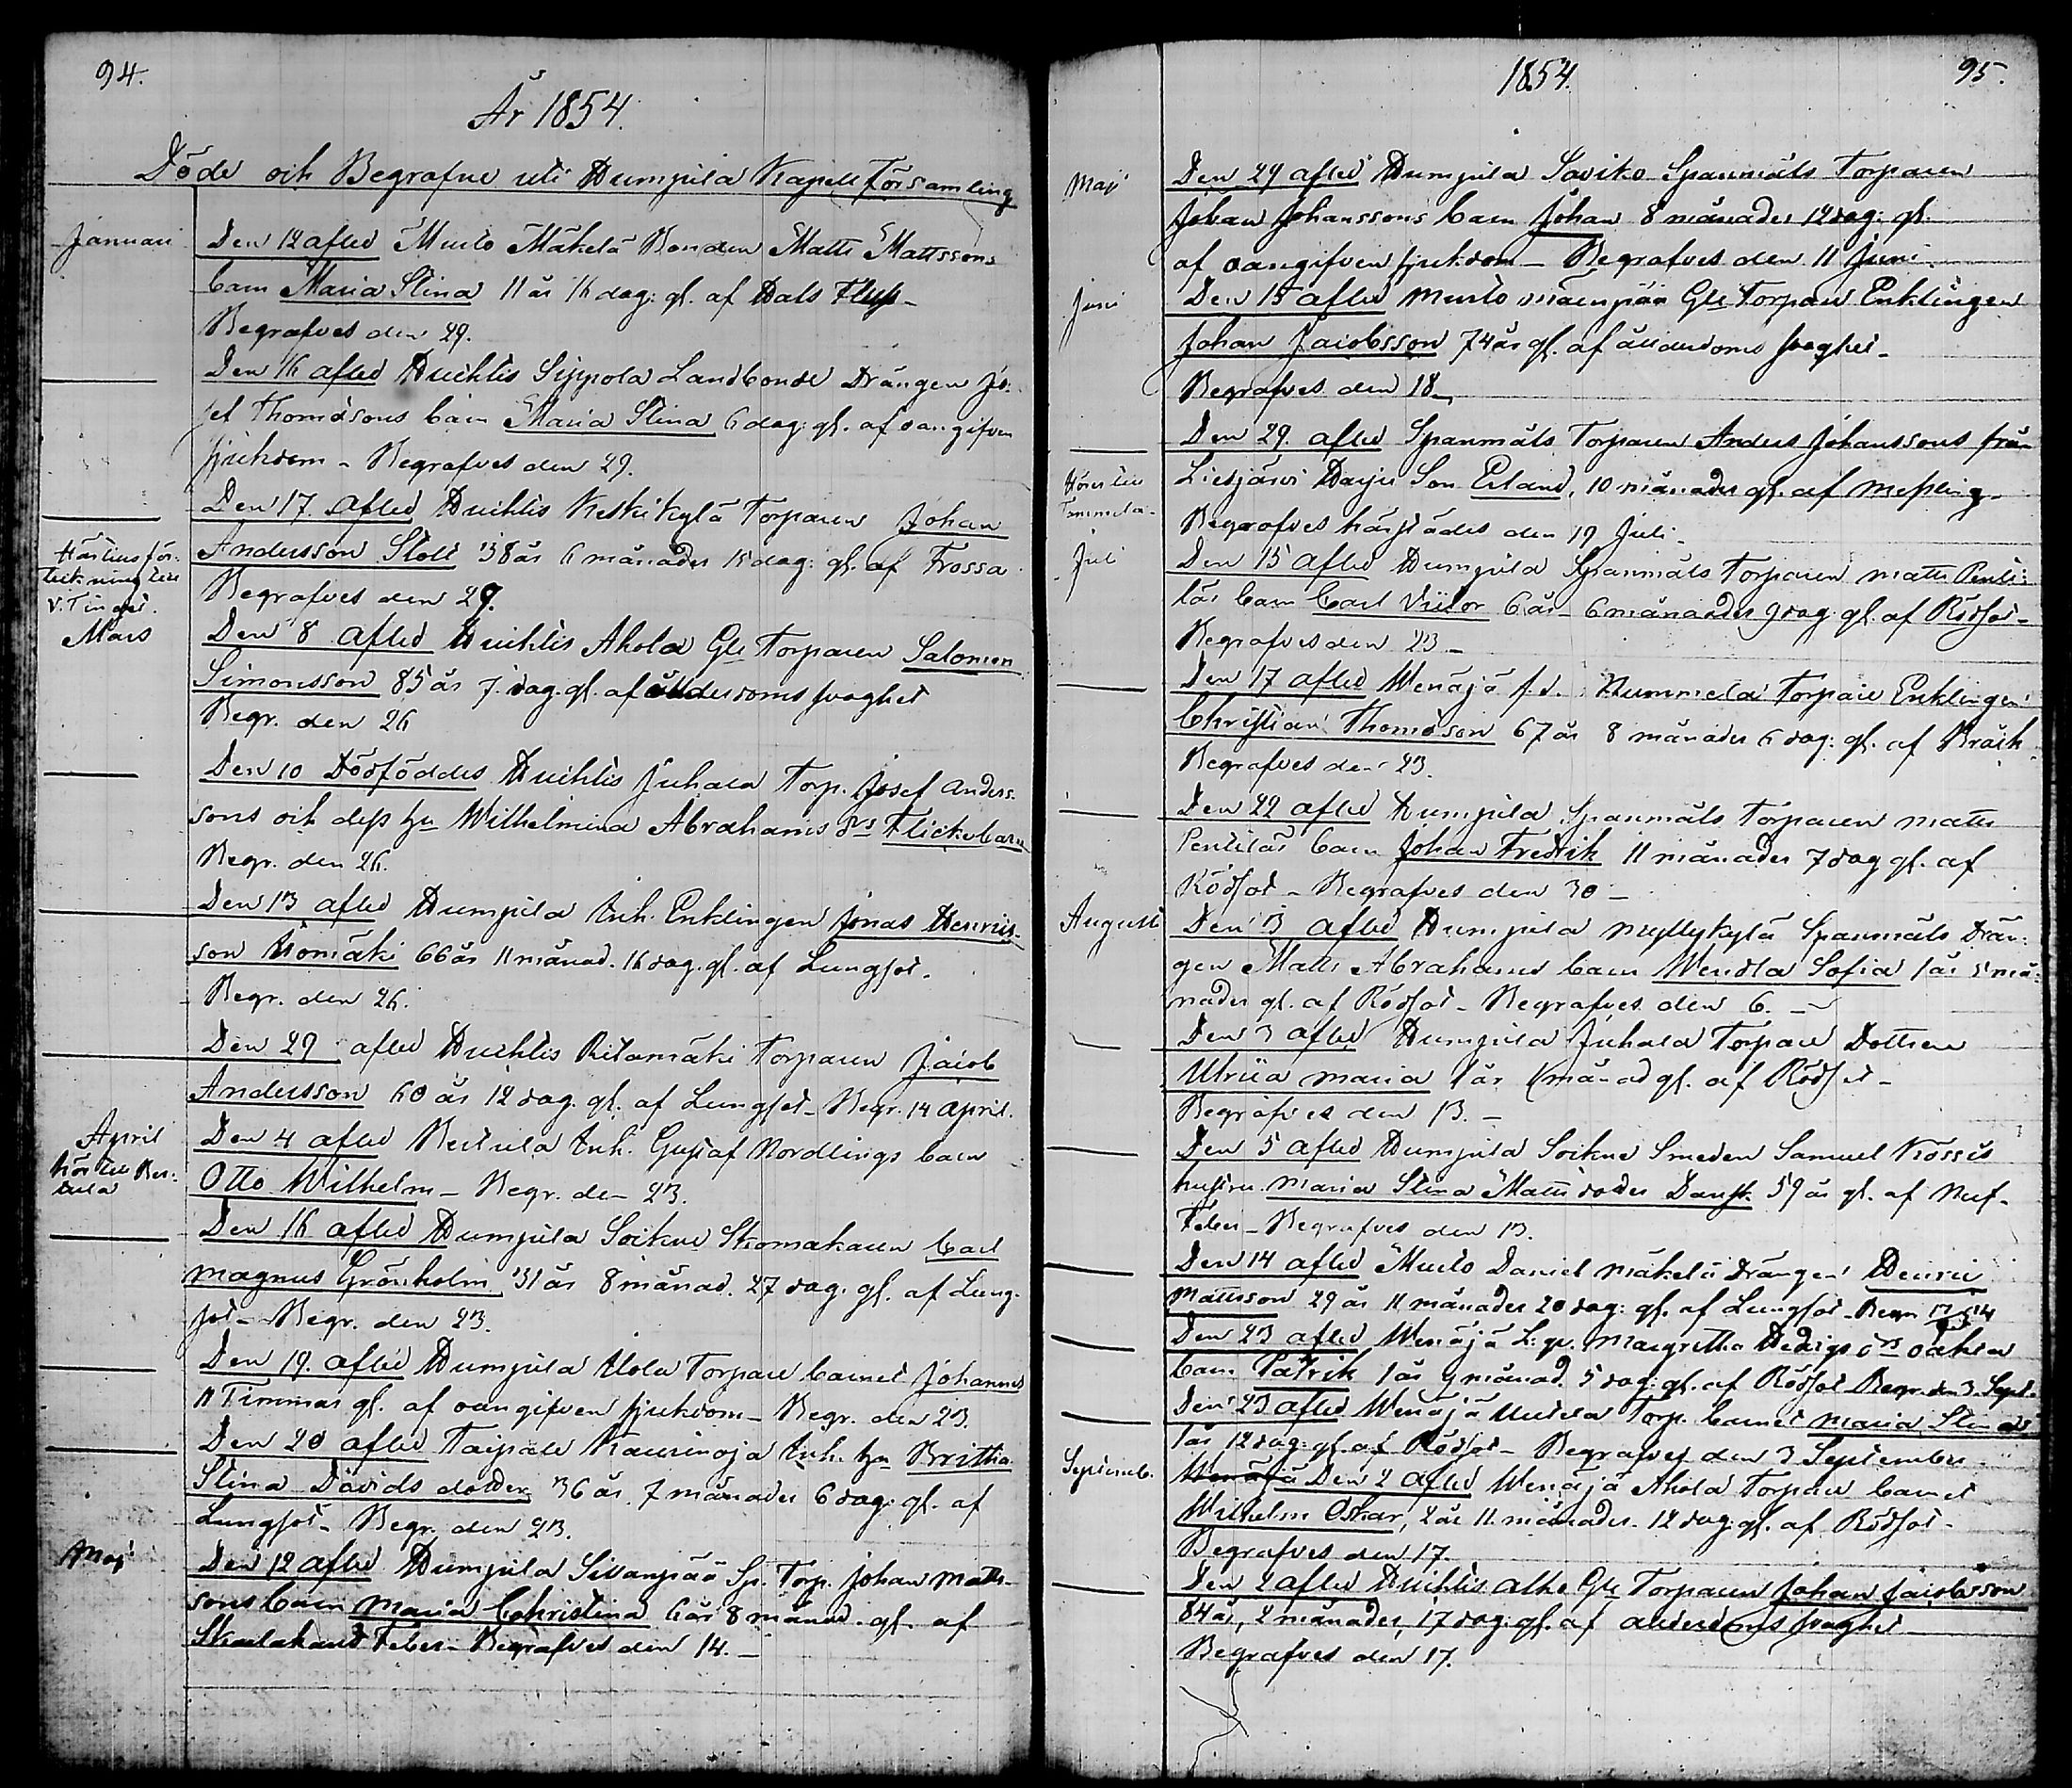 94.
År 1854.
Döde och Begrafne uti Humpila Kapell Församling
Januari
Den 12 afled Murto Mäkelä Bonden Matts Mattssons
barn Maria Stina 11 år 16 dag: gl. af Hals Fluss –
Begrafves den 29.
Den 16 afled Huchtis Sippola Landbonde Drängen Jo-
sef Thomæsons barn Maria Stina 6 dag: gl. af oangifven
sjukdom – Begrafves den 29.
Den 17. afled Huchtis Keskikylä Torparen Johan
Andersson Stolt 38 år 6 månader 15 dag: gl. af Frossa
Begrafves den 29.
Härtills för-
teckning till
V. Tinget.
Mars
Den 8 afled Huchtis Ahola Gle Torparen Salomon
Simonsson 85 år 7. dag. gl. af ålderdoms svaghet
Begr. den 26
Den 10 Dödföddes Huchtis Juhala Torp. Josef Anders-
sons och dess hu Wilhelmina Abrahams drs Flickebarn
Begr. den 26.
Den 13 afled Humpila Inh. Enklingen Jonas Henriks-
son 66 år 11 månad. 16 dag. gl. af Lungsot.
Begr. den 26.
Den 29 afled Huchtis Ritamäki Torparen Jacob
Andersson 60 år 12 dag. gl. af Lungsot – Begr. 14 April.
April
hör till Ber-
tula
Den 4 afled Bertula Inh. Gustaf Nordlings barn
Otto Wilhelm – Begr. den 23.
Den 16 afled Humpila Soikne Skomakaren Carl
Magnus Grönholm 31 år 8 månad. 27 dag. gl. af Lung-
sot – Begr. den 23.
Den 19. afled Humpila Uola Torpare barnet Johannes
11 Timmar gl. af oangifven sjukdom – Begr. den 23.
Den 20 afled Taipale Kaurinoja Inh. hu Britha
Stina Davids dotter 36 år 7 månader 6 dag: gl. af
Lungsot – Begr. den 23.
Maj
Den 12 afled Humpila Sillanpää Sp. Torp. Johan Matts-
sons barn Maria Christina 6 år 8 månad. gl. af
Skarlakans Feber – Begrafves den 14. –
1854.
95.
Maj
Den 29 afled Humpila Saviko Spanmåls Torparen
Johan Johanssons barn Johan 8 månader 12 dag: gl.
af oangifven sjukdom – Begrafves den 11 Juni.
Juni
Den 15 afled Murto Gle Torpare Enklingen
Johan Jacobsson 74 år gl. af ålderdoms svaghet –
Begrafves den 18 –
Den 29. afled Spanmåls Torparen Anders Johanssons från
Hörer till
Tammela.
Liesjärvi Son Erland, 10 månader gl. af Messling –
Begrafves härstädes den 19 Juli –
Juli
Den 15 afled Humpila Spanmåls Torparen Matts Penti-
läs barn Carl Victor 6 år 6 månader 9 dag: gl. af Rödsot –
Begrafves den 23 –
Den 17 afled Wenäjä f.d. Nummela Torpare Enklingen
Christian Thomæson 67 år 8 månader 6 dag: gl. af Bråck.
Begrafves den 23.
Den 22 afled Humpila Spanmåls Torparen Matts
Pentiläs barn Johan Fredrik 11 månader 7 dag gl. af
Rödsot – Begrafves den 30 –
Augusti
Den 3 afled Humpila Myllykylä Spanmåls Drän-
gen Matts Abrahams barn Wendla Sofia 1 år 5 må-
nader gl. af Rödsot – Begrafves den 6. –
Den 3 afled Humpila Juhala Torpare Dottren
Ulrica Maria 1 år 1 månad gl. af Rödsot –
Begrafves den 13. –
Den 5 afled Humpila Soikne Smeden Samuel Kössis
hustru Maria Stina Mattsdotter 59 år gl. af Nerf-
Feber – Begrafves den 13.
Den 14 afled Murto Daniel Mäkelä Drängen Henric
Mattsson 29 år 11 månader 20 dag: gl. af Lungsot – Begr.
Den 23 afled Wenäjä Margretha Hedvigs drs oäkta
barn Patrik 1 år 9 månad. 5 dag: gl. af Rödsot Begr. den 3 Sept.
Den 23 afled Wenäjä Torp. barnet Maria Stina
1 år 12 dag: gl. af Rödsot – Begrafves den 3 September
Septemb.
Wenäjä Den 2 afled Wenäjä Ahola Torpare barnet
Wilhelm Oskar, 2 år 11 månader. 12 dag: gl. af Rödsot –
Begrafves den 17.
Den 2 afled Huchtis Gle Torparen Johan Jacobsson
84 år, 2 månader, 17 dag: gl. af ålderdoms svaghet –
Begrafves den 17.